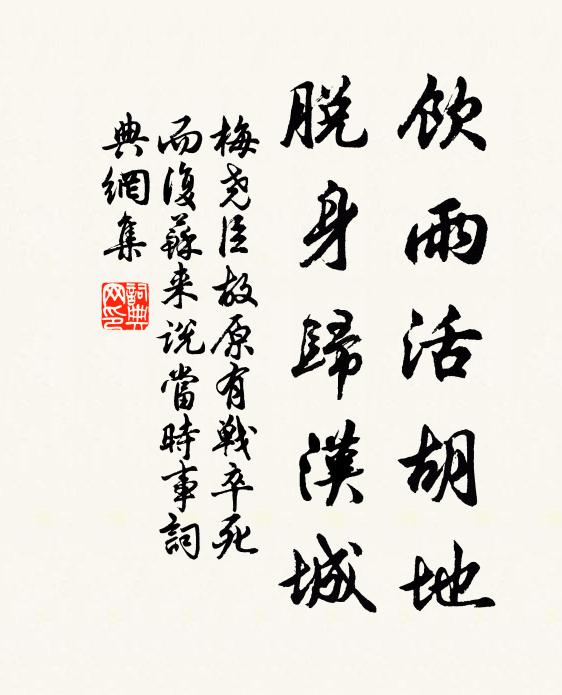 飲雨活胡地
脱身歸漢城
梅尧臣故原有戰卒死
而復蘇来说當時事詞
典網集
詞典
网印